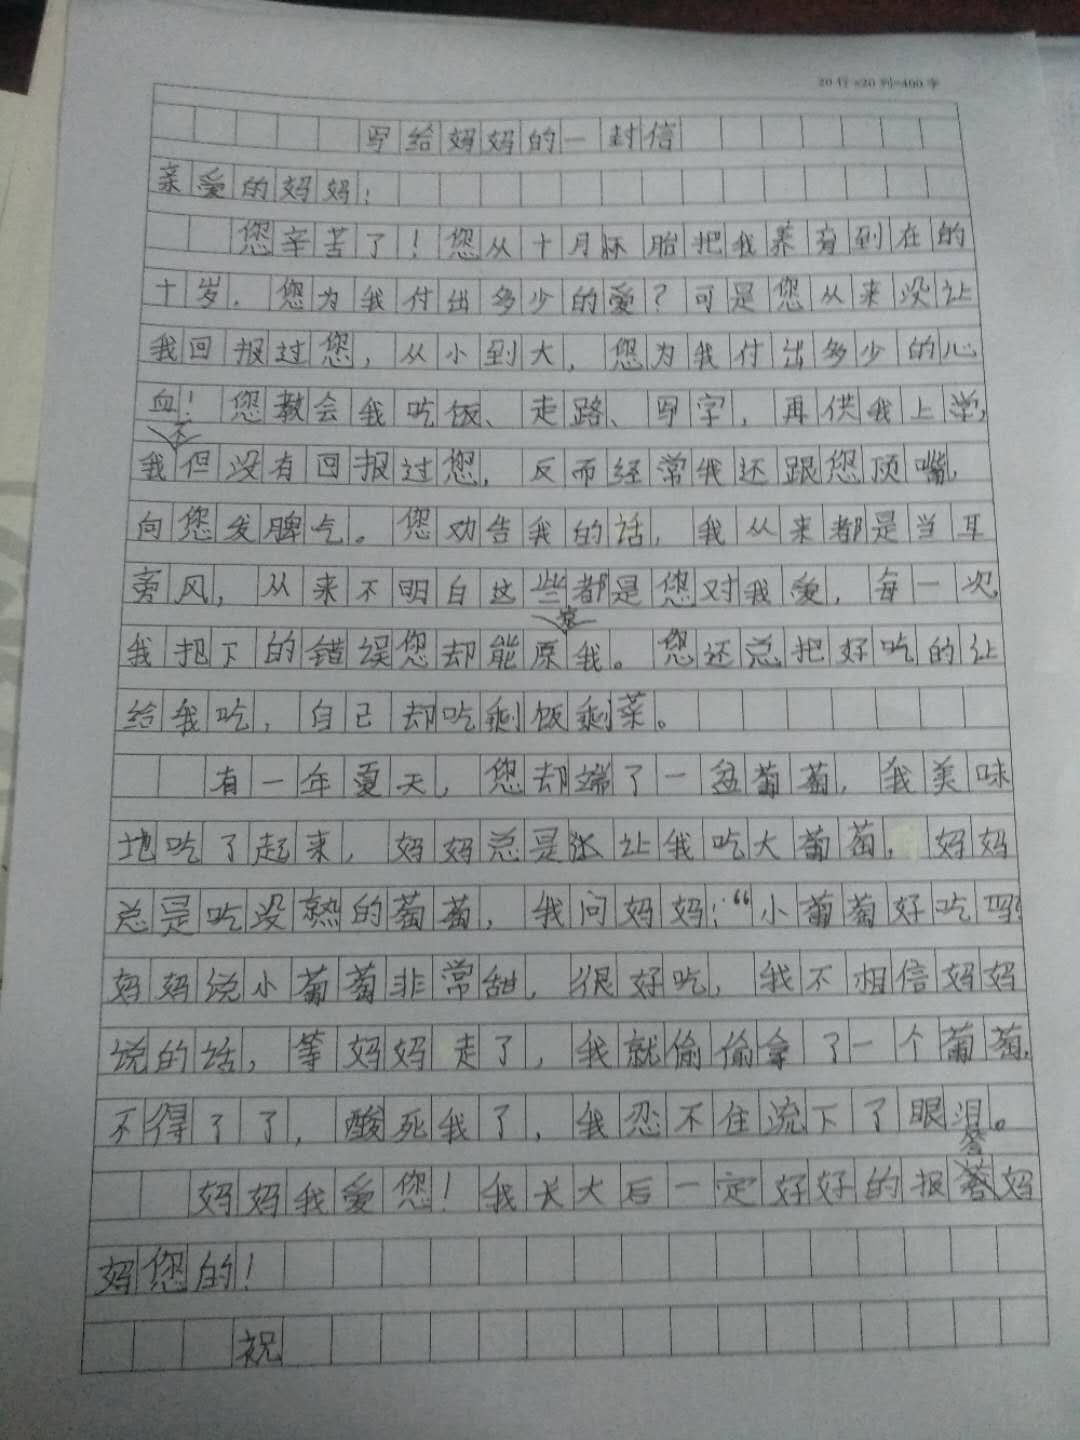 20行×20列=400字
写给妈妈的一封信
亲爱的妈妈:
您辛苦了!您从十月怀胎把我养育到在的
十岁.您为我付出多少的爱?可是您从来没让
我回报过您,从小到大,您为我付出多少的心
血!您教会我吃饭、走路、写字,再供我上学,
我不但没有回报过您,反而经常我还跟您顶嘴,
向您发脾气。您劝告我的话,我从来都是当耳
旁风,从来不明白这些都是您对我爱,每一次
我犯下的错误您却能原谅我。您还总把好吃的让
给我吃,自己却吃剩饭剩菜。
有一年夏天,您却端了一盆葡萄,我美味
地吃了起来,妈妈总是让我吃大葡萄,妈妈
总是吃没熟的葡萄,我问妈妈:“小葡萄好吃吗?
妈妈说小葡萄非常甜,很好吃,我不相信妈妈
说的话,等妈妈走了,我就偷偷拿了一个葡萄,
不得了了,酸死我了,我忍不住流下了眼泪。
妈妈我爱您!我长大后一定好好的报答妈
妈您的!
祝